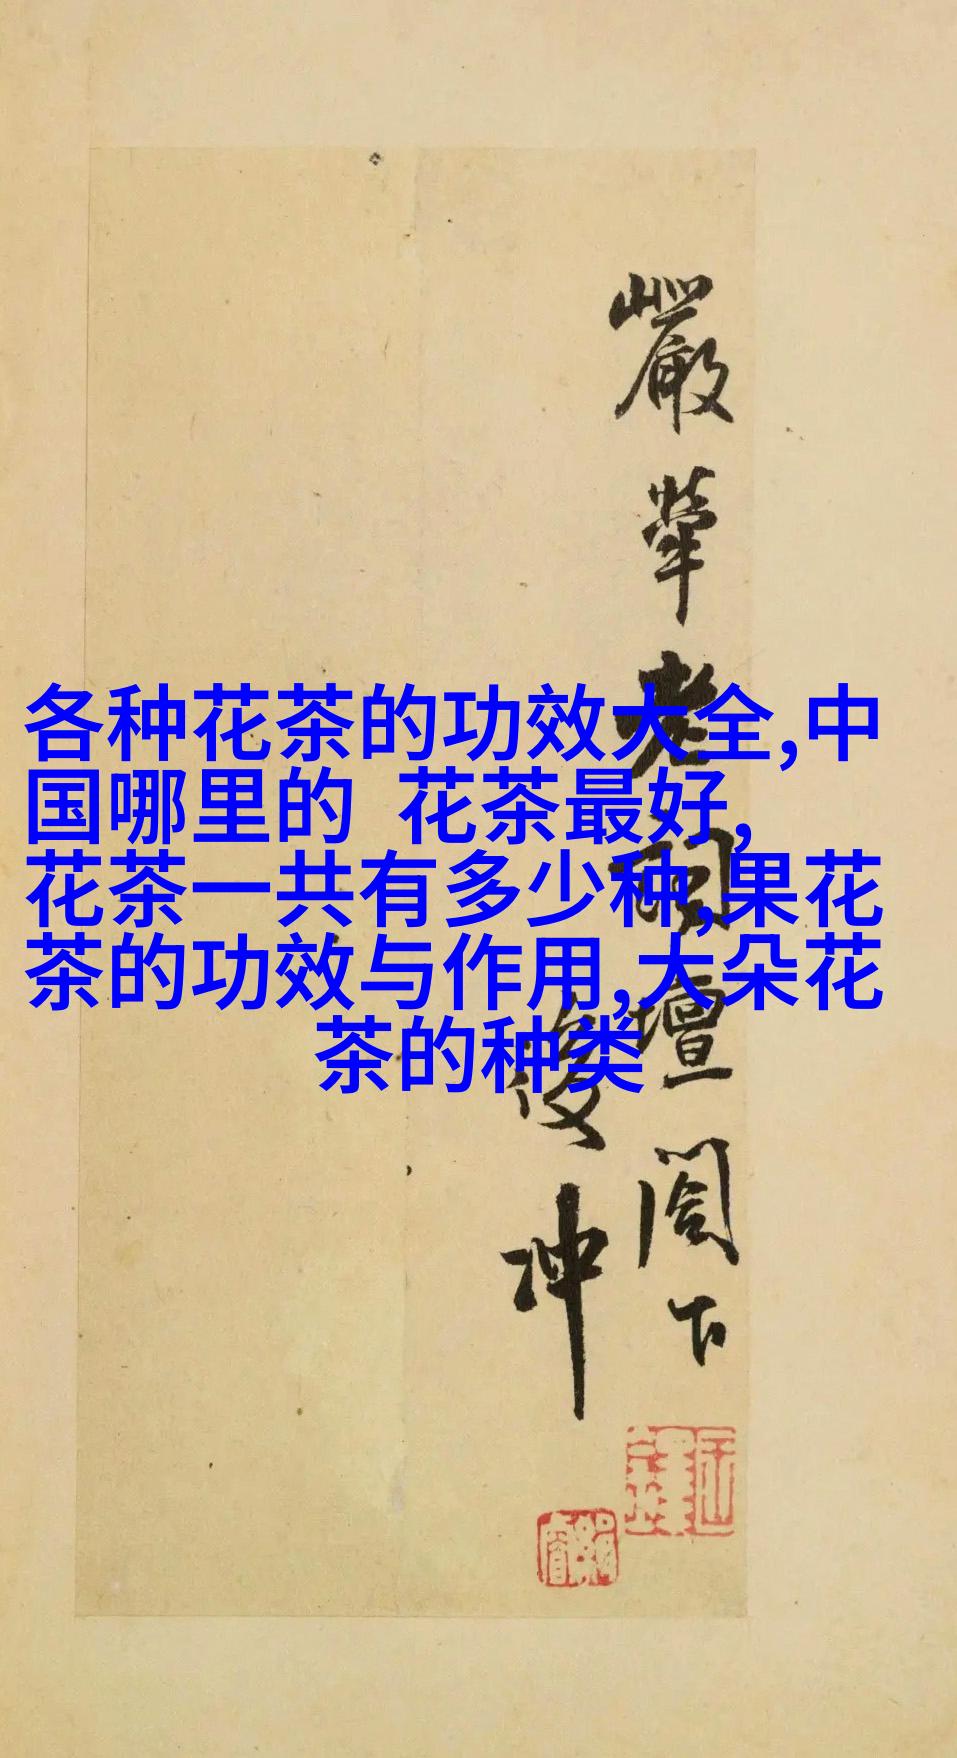 各种花茶的功效大全,中
国哪里的 花茶最好,
花茶一共有多少种,果花
茶的功效与作用,大朵花
茶的种类
嚴犖老詞壇閣下
俊冲